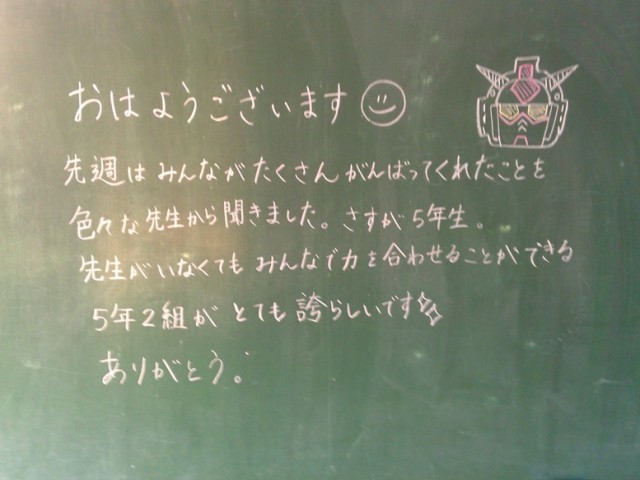 おはようございます
先週はみんながたくさんがんばってくれたことを
色々な先生から聞きました。さすが5年生。
先生がいなくてもみんなで力を合わせることができる
5年2組がとても誇らしいです
ありがとう。